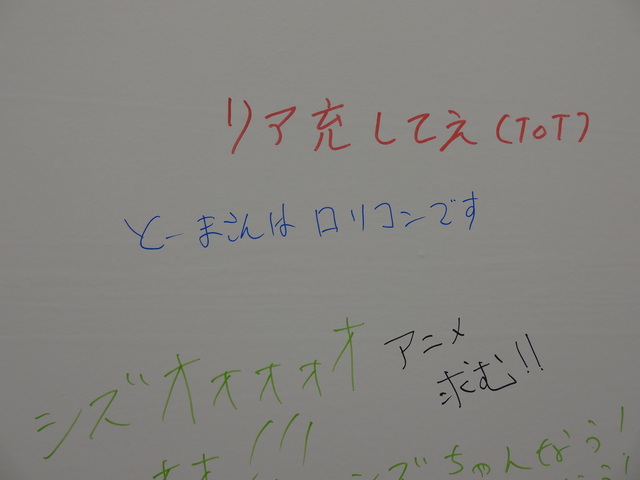 リア充してえ(ToT)
とーまさんはロリコンです
シズオォォォオ
アニメ
求む!!
ズちゃんなう!